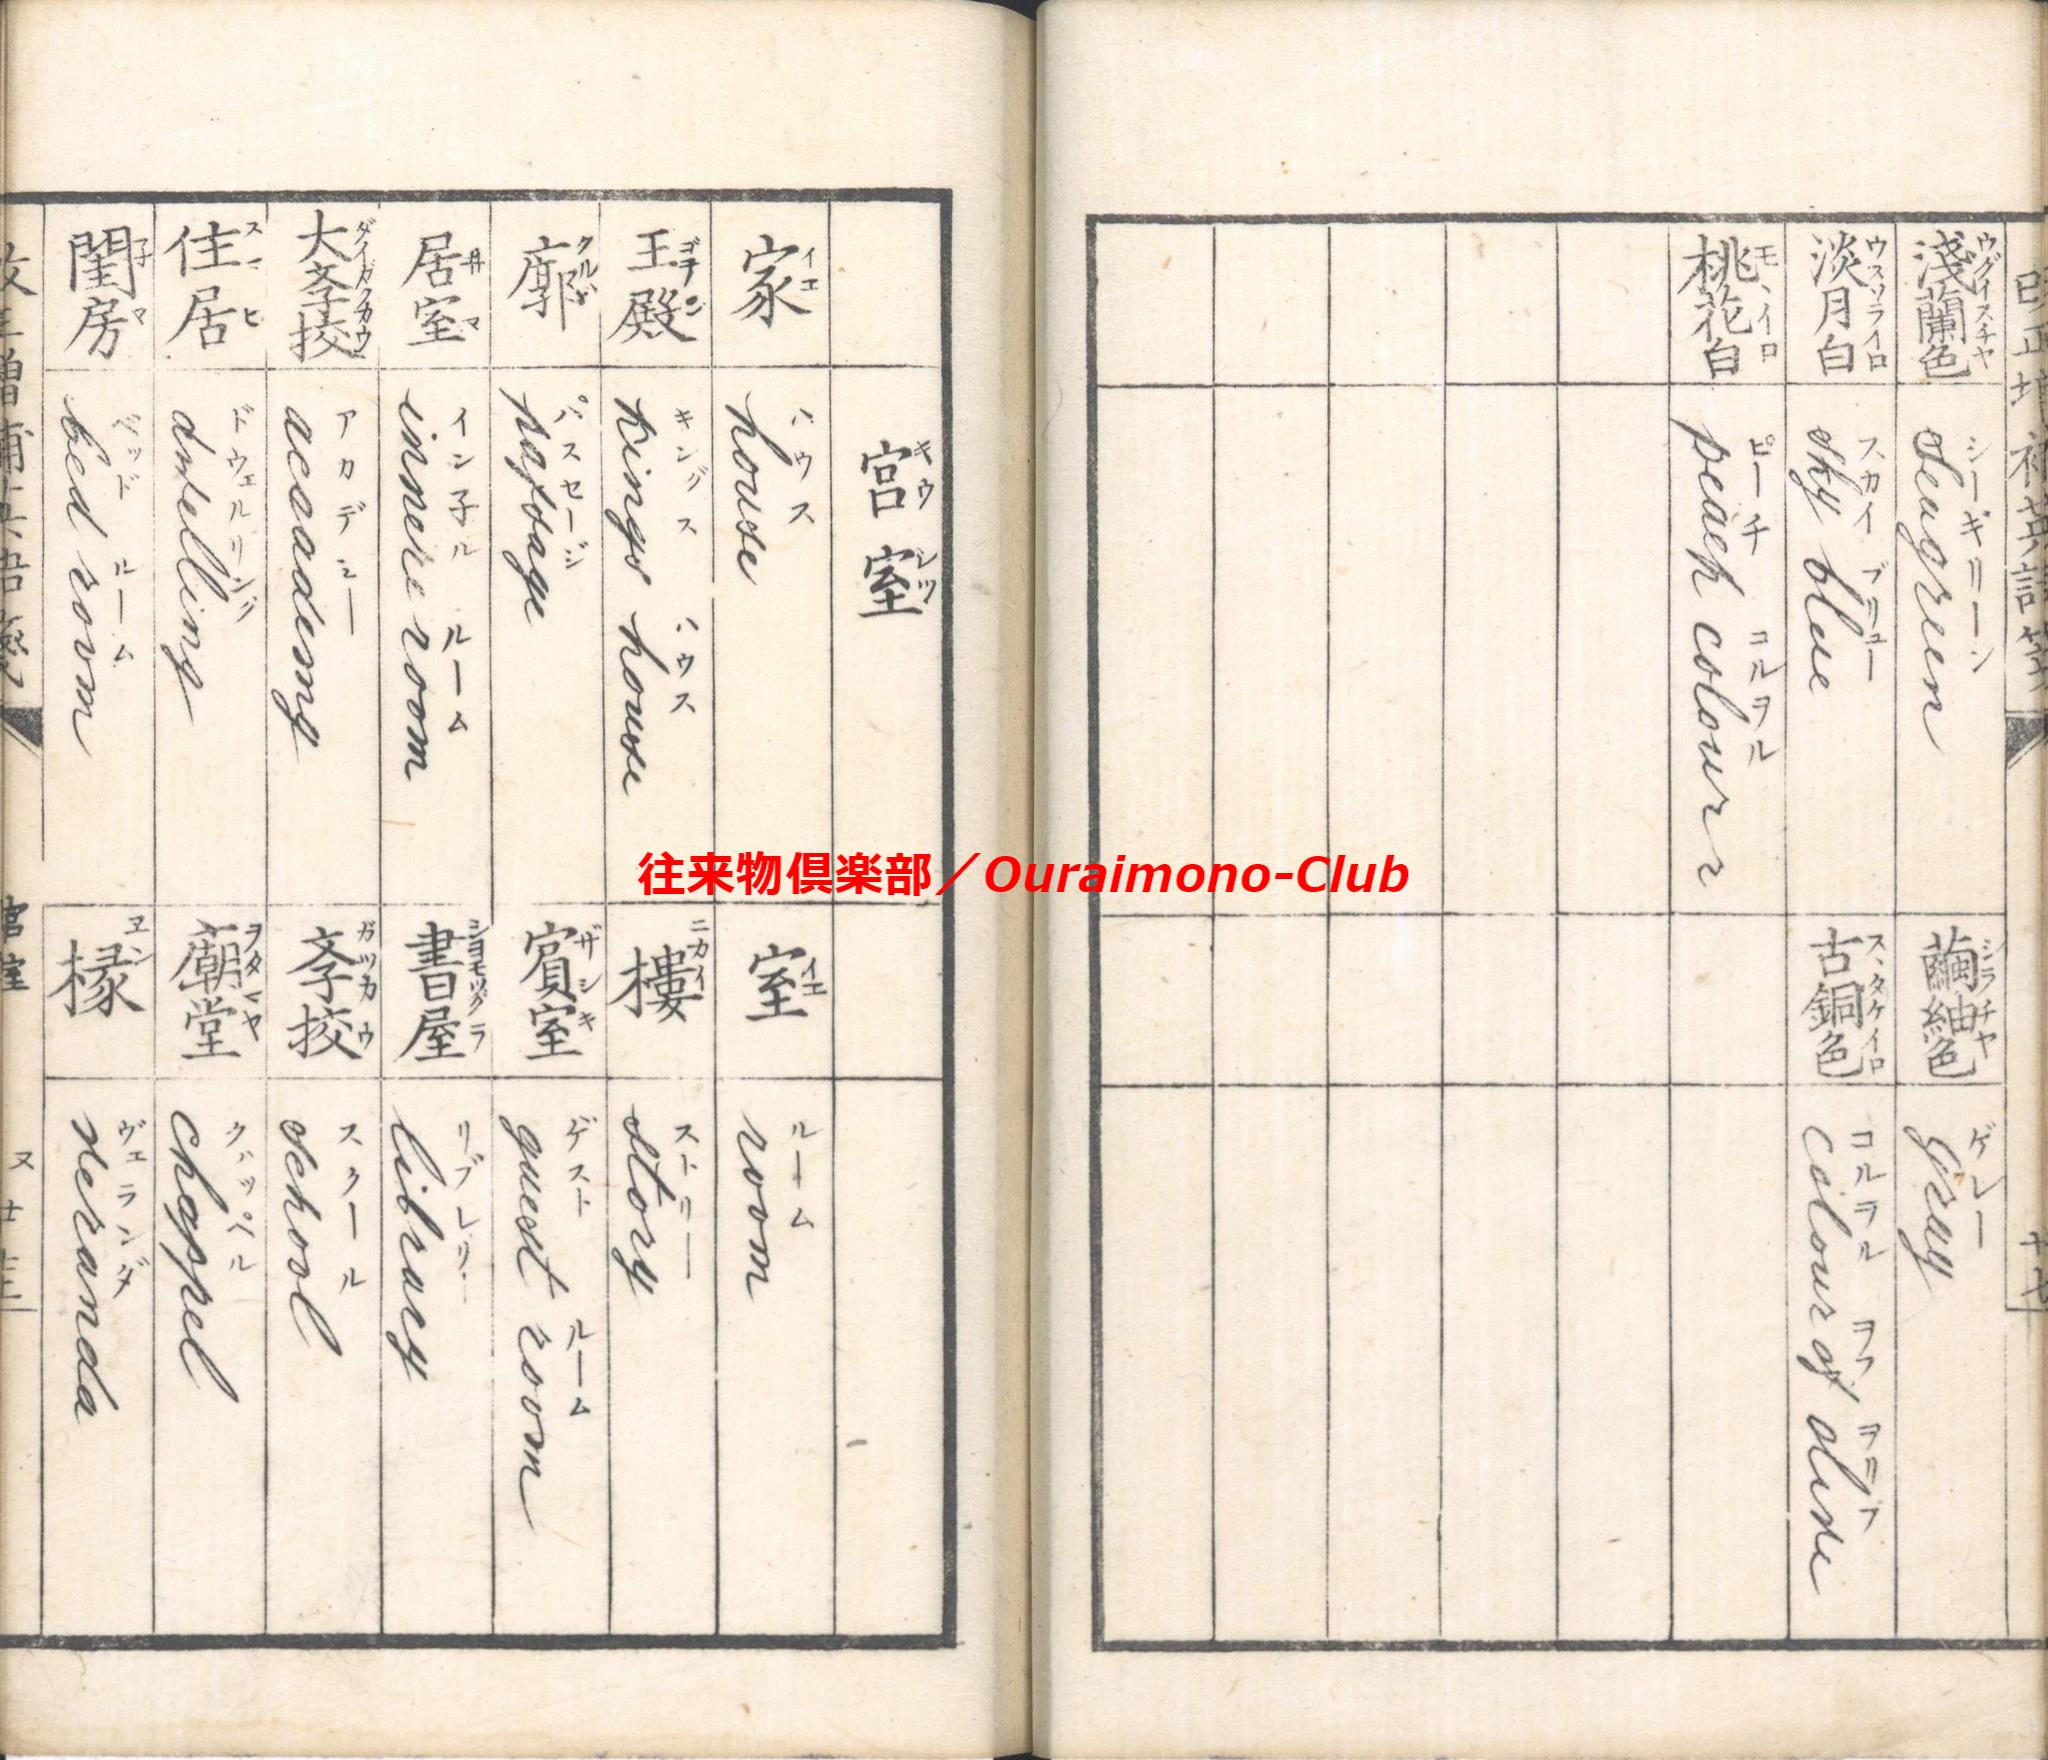 淺蘭色 ウグイスチヤ
シーギリーン
Seagreen
繭紬色 シラチヤ
ゲレー
gray
淡月白 ウスソライロ
スカイ ブリュー
sky blue
古銅色 スヽタケイロ
コルヲル ヲフ ヲリフ
colour of olive
桃花白 モヽイロ
ピーチ コルヲル
peach colour
往来物倶楽部／Ouraimono-Club
宮室 キウシツ
家 イエ
ハウス
house
室 イエ
ルーム
room
王殿 ゴテン
キングス ハウス
kings house
樓 ニカイ
ストリー
story
廓 クルワ
パスセージ
passage
賓室 ザシキ
ゲスト ルーム
guest room
居室 井マ
イン子ル ルーム
innere room
書屋 シヨモツグラ
リブレリー
library
大斈挍 ダイガクカウ
アカデミー
acaademy
斈挍 ガツカウ
スクール
school
住居 スマヒ
ドウェルリング
dwelling
廟堂 ヲタマヤ
クハッペル
chappel
閨房 子マ
ベッド ルーム
bed room
椽 ヱン
ヴェランダ
veranda
宮室